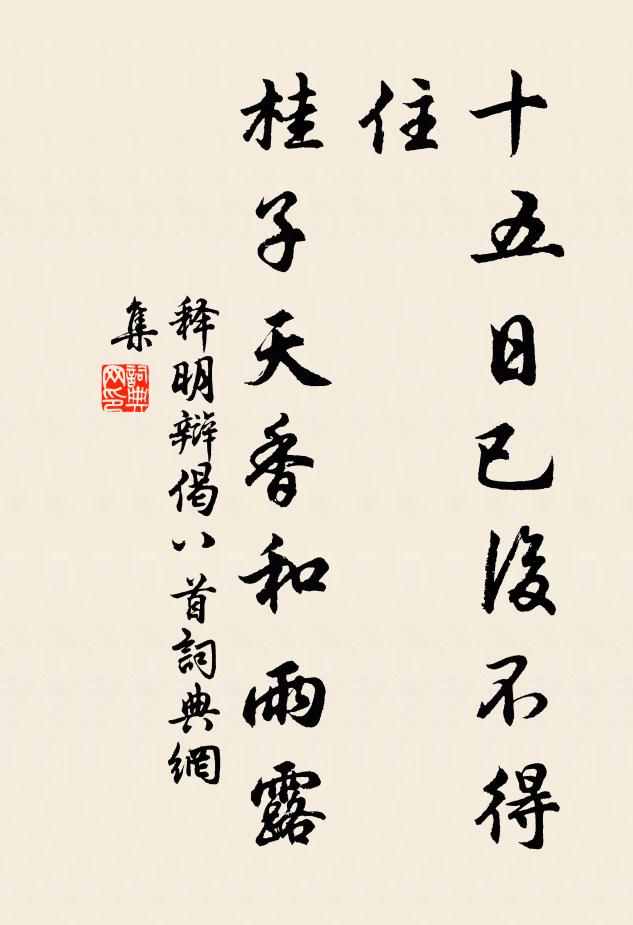 十五日已後不得
住
桂子天香和雨露
释明辩偈八首詞典網
集
詞典
网印